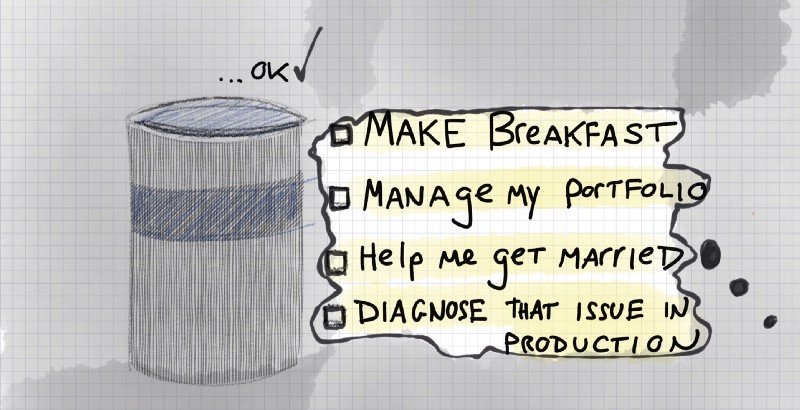 ...OK✓
MAKE BREAKFAST
MANAGE MY PORTFOLIO
Help me get MARRIED
DIAGNOSE THAT ISSUE IN
PRODUCTION